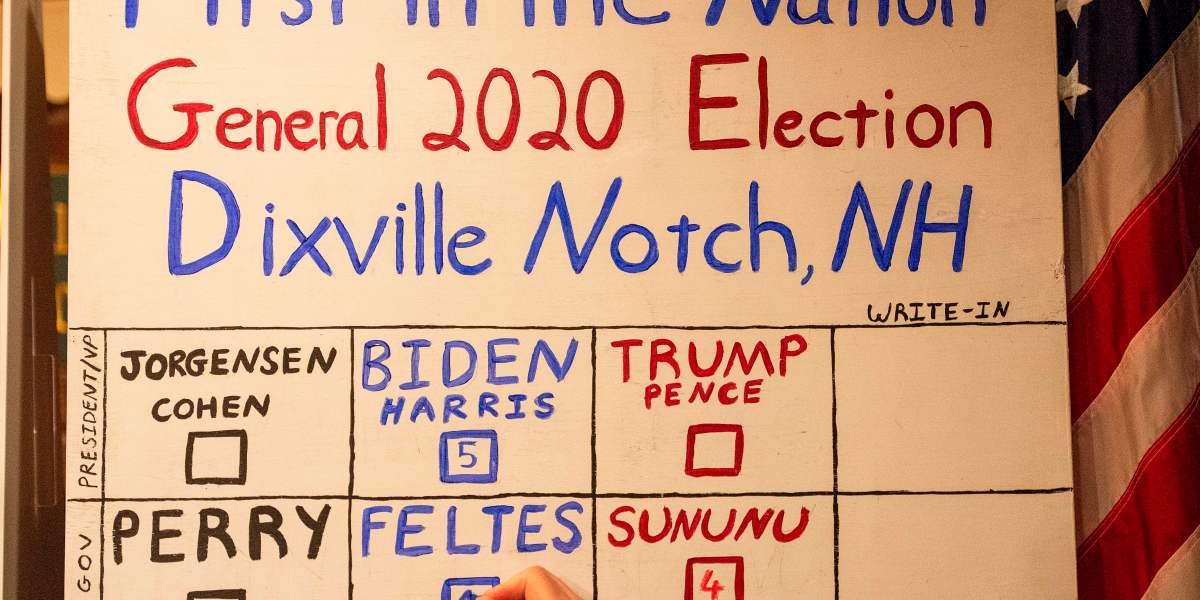 First in the Nation
General 2020 Election
Dixville Notch, NH
WRITE-IN
PRESIDENT/VP
JORGENSEN
COHEN
BIDEN
HARRIS
5
TRUMP
PENCE
GOV
PERRY
FELTES
SUNUNU
4